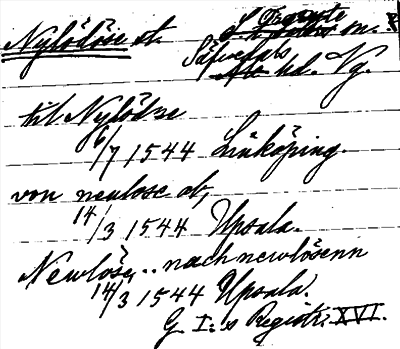 Nylödöse st.
Säfvedals hd. Vg.
til Nylödse
6/7 1544 Linköping.
von neulose ab,
14/3 1544 Upsala.
Newlöse, .. nach newlösenn
14/3 1544 Upsala.
G. I:s Registr. XVI.